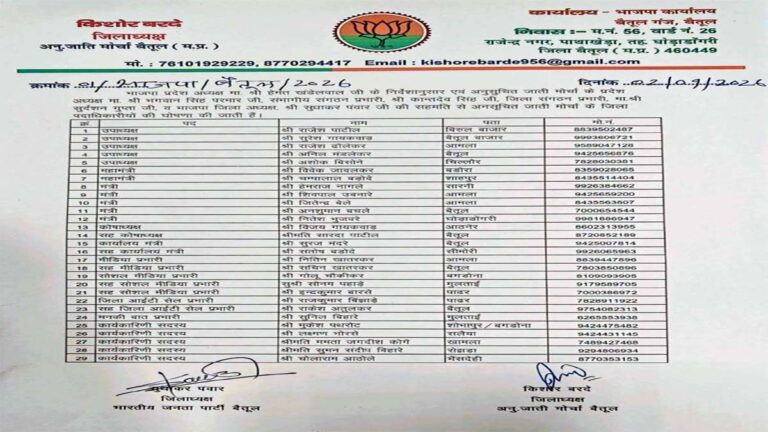 किशोर बरदे
जिलाध्यक्ष
अनु.जाति मोर्चा बैतूल ( म.प्र. )
कार्यालय - भाजपा कार्यालय
बैतूल गंज, बैतूल
निवास :- म.नं. 56, वार्ड नं. 26
राजेन्द्र नगर, पाथाखेड़ा, तह. घोड़ाडोंगरी
जिला बैतूल ( म.प्र.) 460449
मो. : 76101929229, 8770294417 Email : kishorebarde956@gmail.com
क्रमांक 01/भाजपा/बैतूल/2026 दिनांक 02/01/2026
भाजपा प्रदेश अध्यक्ष मा. श्री हेमंत खंडेलवाल जी के निर्देशानुसार एवं अनुसूचित जाती मोर्चा के प्रदेश
अध्यक्ष मा. श्री भगवान सिंह परमार जी, संभागीय संगठन प्रभारी, श्री कान्तदेव सिंह जी, जिला संगठन प्रभारी, मा.श्री
सुर्दशन गुप्ता जी, व भाजपा जिला अध्यक्ष, श्री सुधाकर पवार जी की सहमति से अनुसूचित जाती मोर्चा के जिला
पदाधिकारीयों की घोषणा की जाती है।
क्रं पद नाम पता मो.नं.
1 उपाध्यक्ष श्री राजेश पाटील बिसल बाजार 8839502487
2 उपाध्यक्ष श्री सुरेश गायकवाड़ बैतूल बाजार 9993606721
3 उपाध्यक्ष श्री राजेश ढोलेकर आमला 9589047126
4 उपाध्यक्ष श्री अनिल मंडलेकर बैतूल 9425656876
5 उपाध्यक्ष श्री अशोक बिसोने चिल्लौर 7828030381
6 महामंत्री श्री विवेक जावलकर बडोरा 8359028065
7 महामंत्री श्री चम्पालाल बड़ोदे शाहपुर 8435814404
8 मंत्री श्री हेमराज नागले सारनी 9926384662
9 मंत्री श्री शिवपाल उबनारे आमला 9425659200
10 मंत्री श्री जितेन्द्र बेले आमला 8435563507
11 मंत्री श्री अनशुमान बचले बैतूल 7000654544
12 मंत्री श्री नितेश भुजबरे घोड़ाडोंगरी 9981886947
13 कोषाध्यक्ष श्री विजय गायकवाड़ आठनेर 8602313955
14 सह कोषाध्यक्ष श्रीमति सारदा पाटील बैतूल 8720852189
15 कार्यालय मंत्री श्री सुरज मंदरे बैतूल 9425007814
16 सह कार्यालय मंत्री श्री संतोष बड़ोदे सीमोरी 9926065963
17 मीडिया प्रभारी श्री नितिन खातरकर आमला 8839447896
18 सह मीडिया प्रभारी श्री सचिन खातरकर बैतूल 7803850896
19 सोशल मीडिया प्रभारी श्री गोलू चौकीकर बगडोना 8109093905
20 सह सोशल मीडिया प्रभारी सुश्री सोनम पहाड़े मुलताई 9179589705
21 सह सोशल मीडिया प्रभारी श्री इन्द्रकुमार बारसे पाढर 7000386972
22 जिला आईटी सेल प्रभारी श्री राजकुमार बिंझाड़े पाढर 7828911922
23 सह जिला आईटी सेल प्रभारी श्री राकेश अतुलकर बैतूल 9754082313
24 मनकी बात प्रभारी श्री सुनिल बिहारे मुलताई 6265553938
25 कार्यकारिणी सदस्य श्री मुकेश पथरोट शोभापुर / बगडोना 9424475482
26 कार्यकारिणी सदस्य श्री लक्ष्मण भोरसे सलैया 9424431145
27 कार्यकारिणी सदस्य श्रीमति ममता जगदीश कोगे खामला 7489427468
28 कार्यकारिणी सदस्य श्रीमति सुमन संदीप बिहारे रोहाड़ा 9294806934
29 कार्यकारिणी सदस्य श्री चोलाराम आठोले भैंसदेही 8770353153
सुधाकर पवार
जिलाध्यक्ष
भारतीय जनता पार्टी बैतूल
किशोर बरदे
जिलाध्यक्ष
अनु.जाती मोर्चा बैतूल